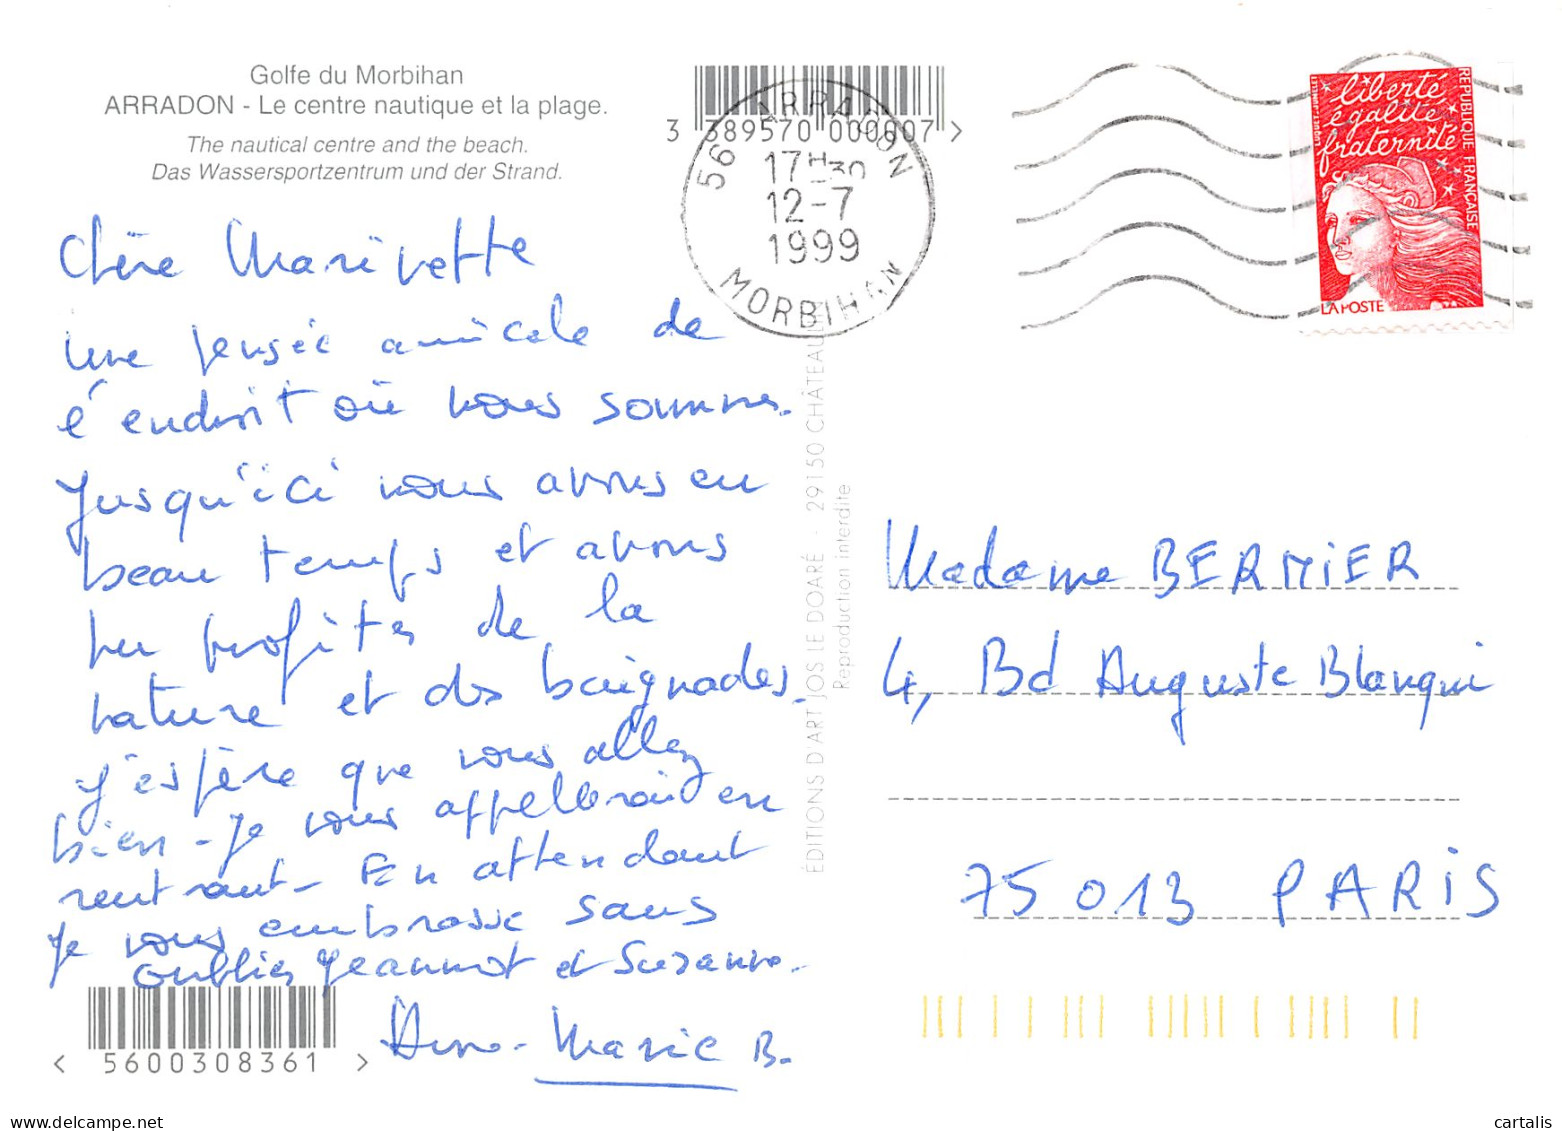 Golfe du Morbihan
ARRADON - Le centre nautique et la plage.
The nautical centre and the beach.
Das Wassersportzentrum und der Strand.
3 389570 000607 >
56 ARRADON
17H30
12-7
1999
MORBIHAN
liberté
égalité
fraternité
RÉPUBLIQUE FRANÇAISE
LA POSTE
Chère Marivette
Une pensée amicale de
l'endroit où nous sommes.
Jusqu'ici nous avons eu
beau temps et avons
pu profiter de la
nature et des baignades.
J'espère que vous allez
bien - Je vous appellerai en
rentrant - En attendant
je vous embrasse sans
oublier Jeannot et Suzanne.
Anne-Marie B.
ÉDITIONS D'ART JOS LE DOARÉ - 29150 CHÂTEAULIN
Reproduction interdite
Madame BERNIER
4, Bd Auguste Blanqui
75013 PARIS
< 5600308361 >
delcampe.net
cartalis